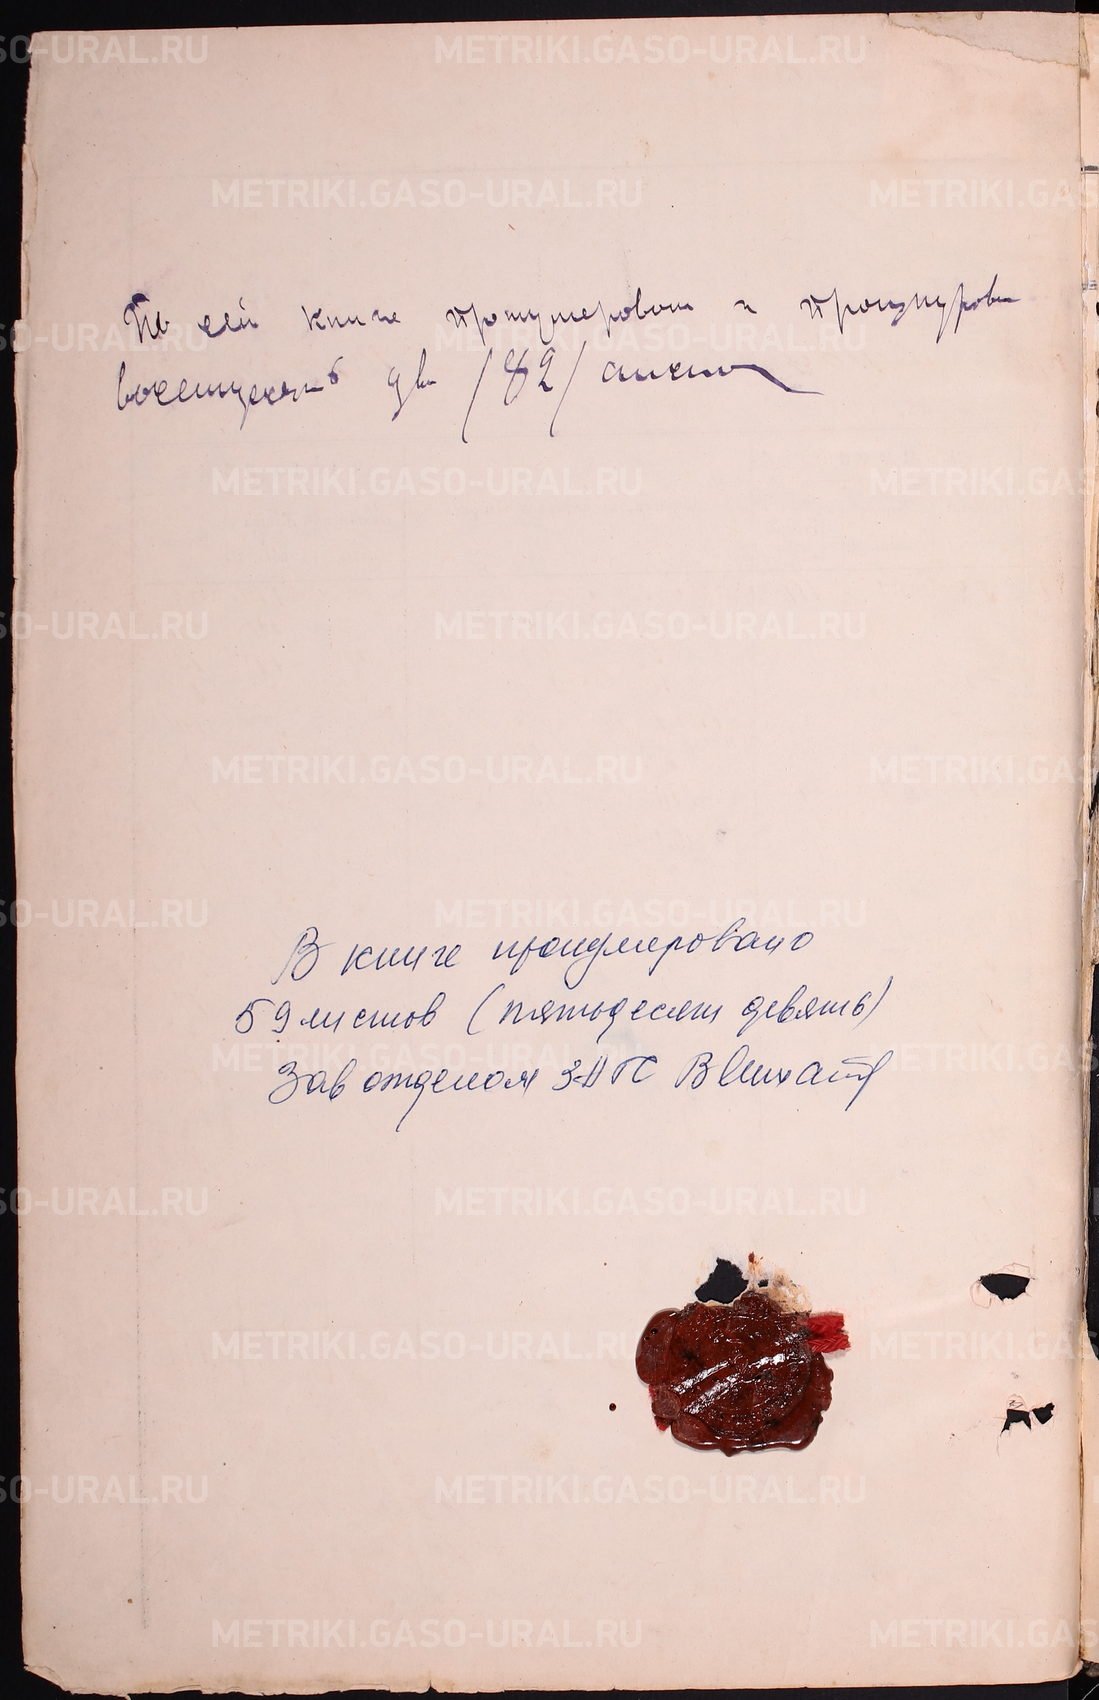 По сей книге пронумеровано и прошнуров
восемьдесят два /82/ листа
В книге пронумеровано
59 листов (пятьдесят девять)
Зав отделом ЗАГС
METRIKI.GASO-URAL.RU